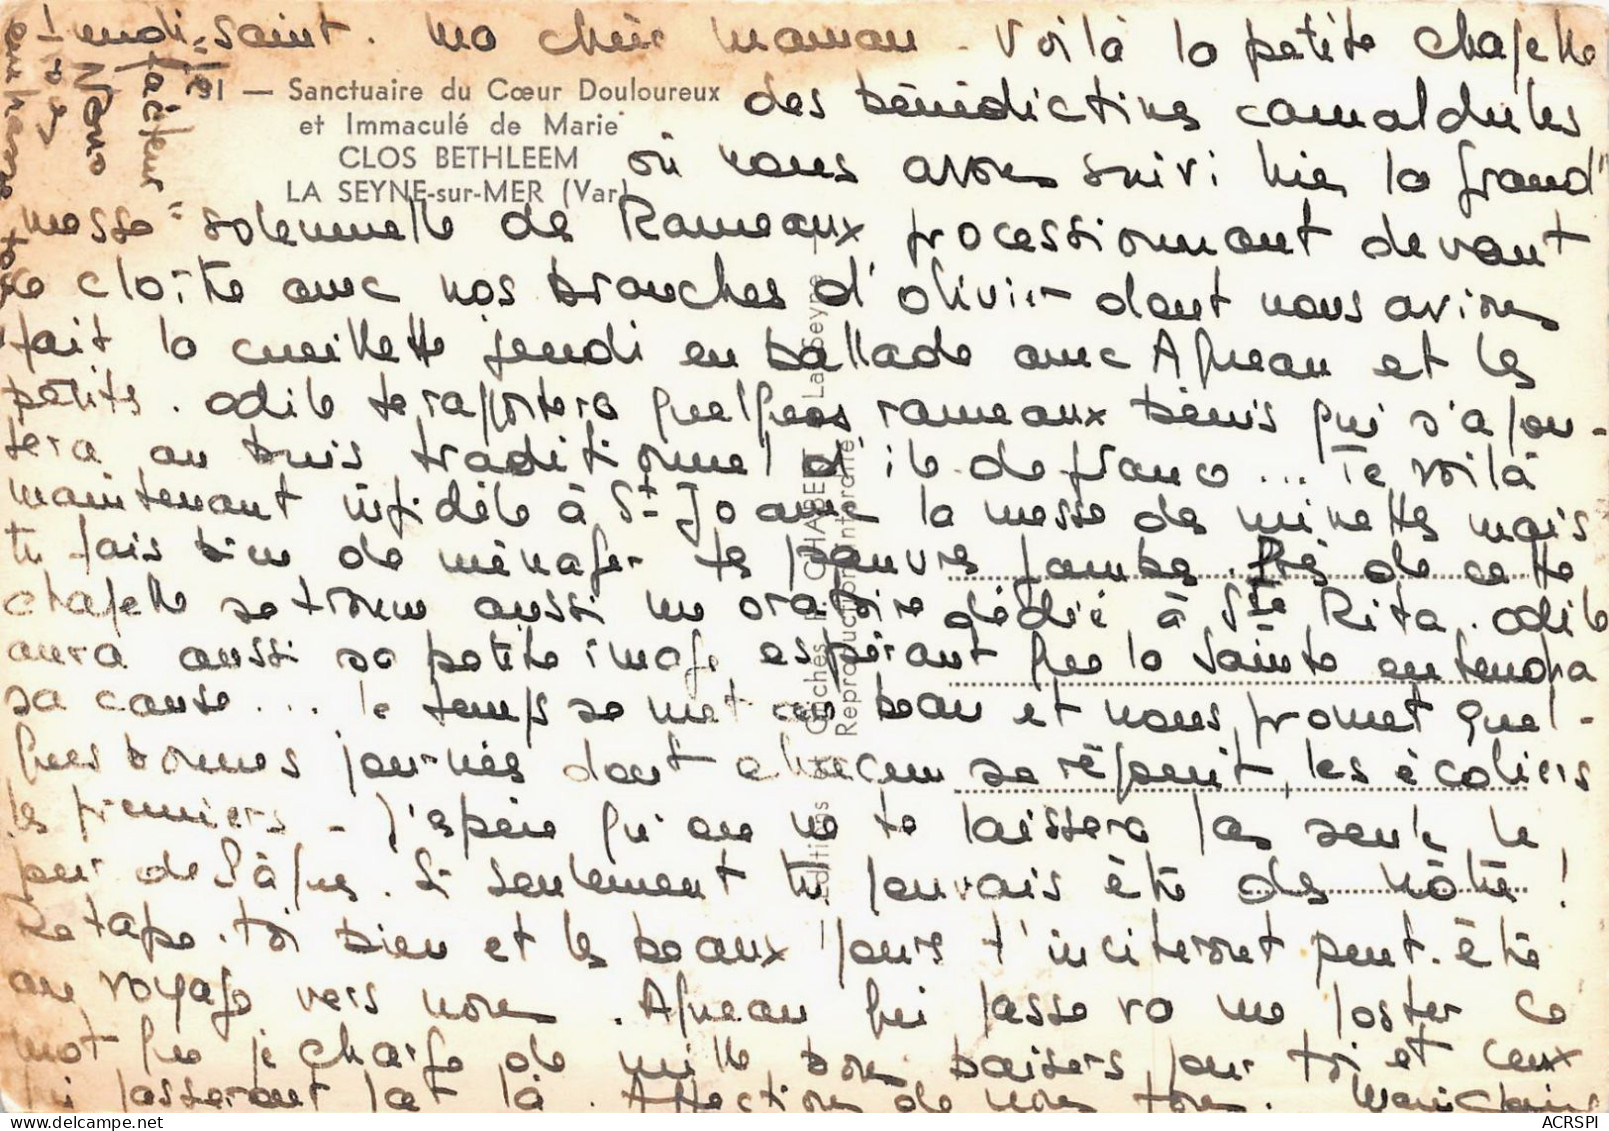 lundi-saint. Ma chère Maman. Voilà la petite chapelle
91 — Sanctuaire du Cœur Douloureux
et Immaculé de Marie
CLOS BETHLEEM
LA SEYNE-sur-MER (Var)
des bénédictines camaldules
où nous avons suivi hier la grand'
messe solennelle de Rameaux processionnant devant
le cloître avec nos branches d'olivier dont nous avions
fait la cueillette jeudi en ballade avec Agneau et les
petits. Odile te rapportera quelques rameaux bénis qui s'ajou-
tera au buis traditionnel d'ile de france... Te voilà
maintenant infidèle à St Jo avec la messe de minettes mais
tu fais bien de ménager tes pauvres jambes. Près de cette
chapelle se trouve aussi un oratoire dédié à Ste Rita. Odile
aura aussi sa petite image espérant que la Sainte entendra
sa cause... le temps se met au beau et nous promet quel-
ques bonnes journées dont chacun se réjouit, les écoliers
les premiers - J'espère qu'on ne te laissera pas seule le
jour de Pâques. Si seulement tu pouvais être des nôtres !
Retape-toi bien et les beaux jours t'inciteront peut-être
au voyage vers nous. Agneau qui passe va me poster ce
mot que je charge de mille bons baisers pour toi et ceux
qui passeront par là. Affections de nous tous. Marie Claire
"le facteur"
Nano
Editions Clichés P. CHABERT La Seyne
Reproduction interdite
ACRSPI